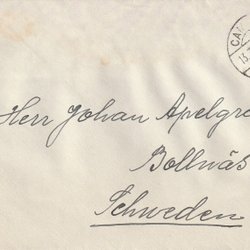 CA
15.
Herr Johan Apelgre
Bollnäs
Schweden